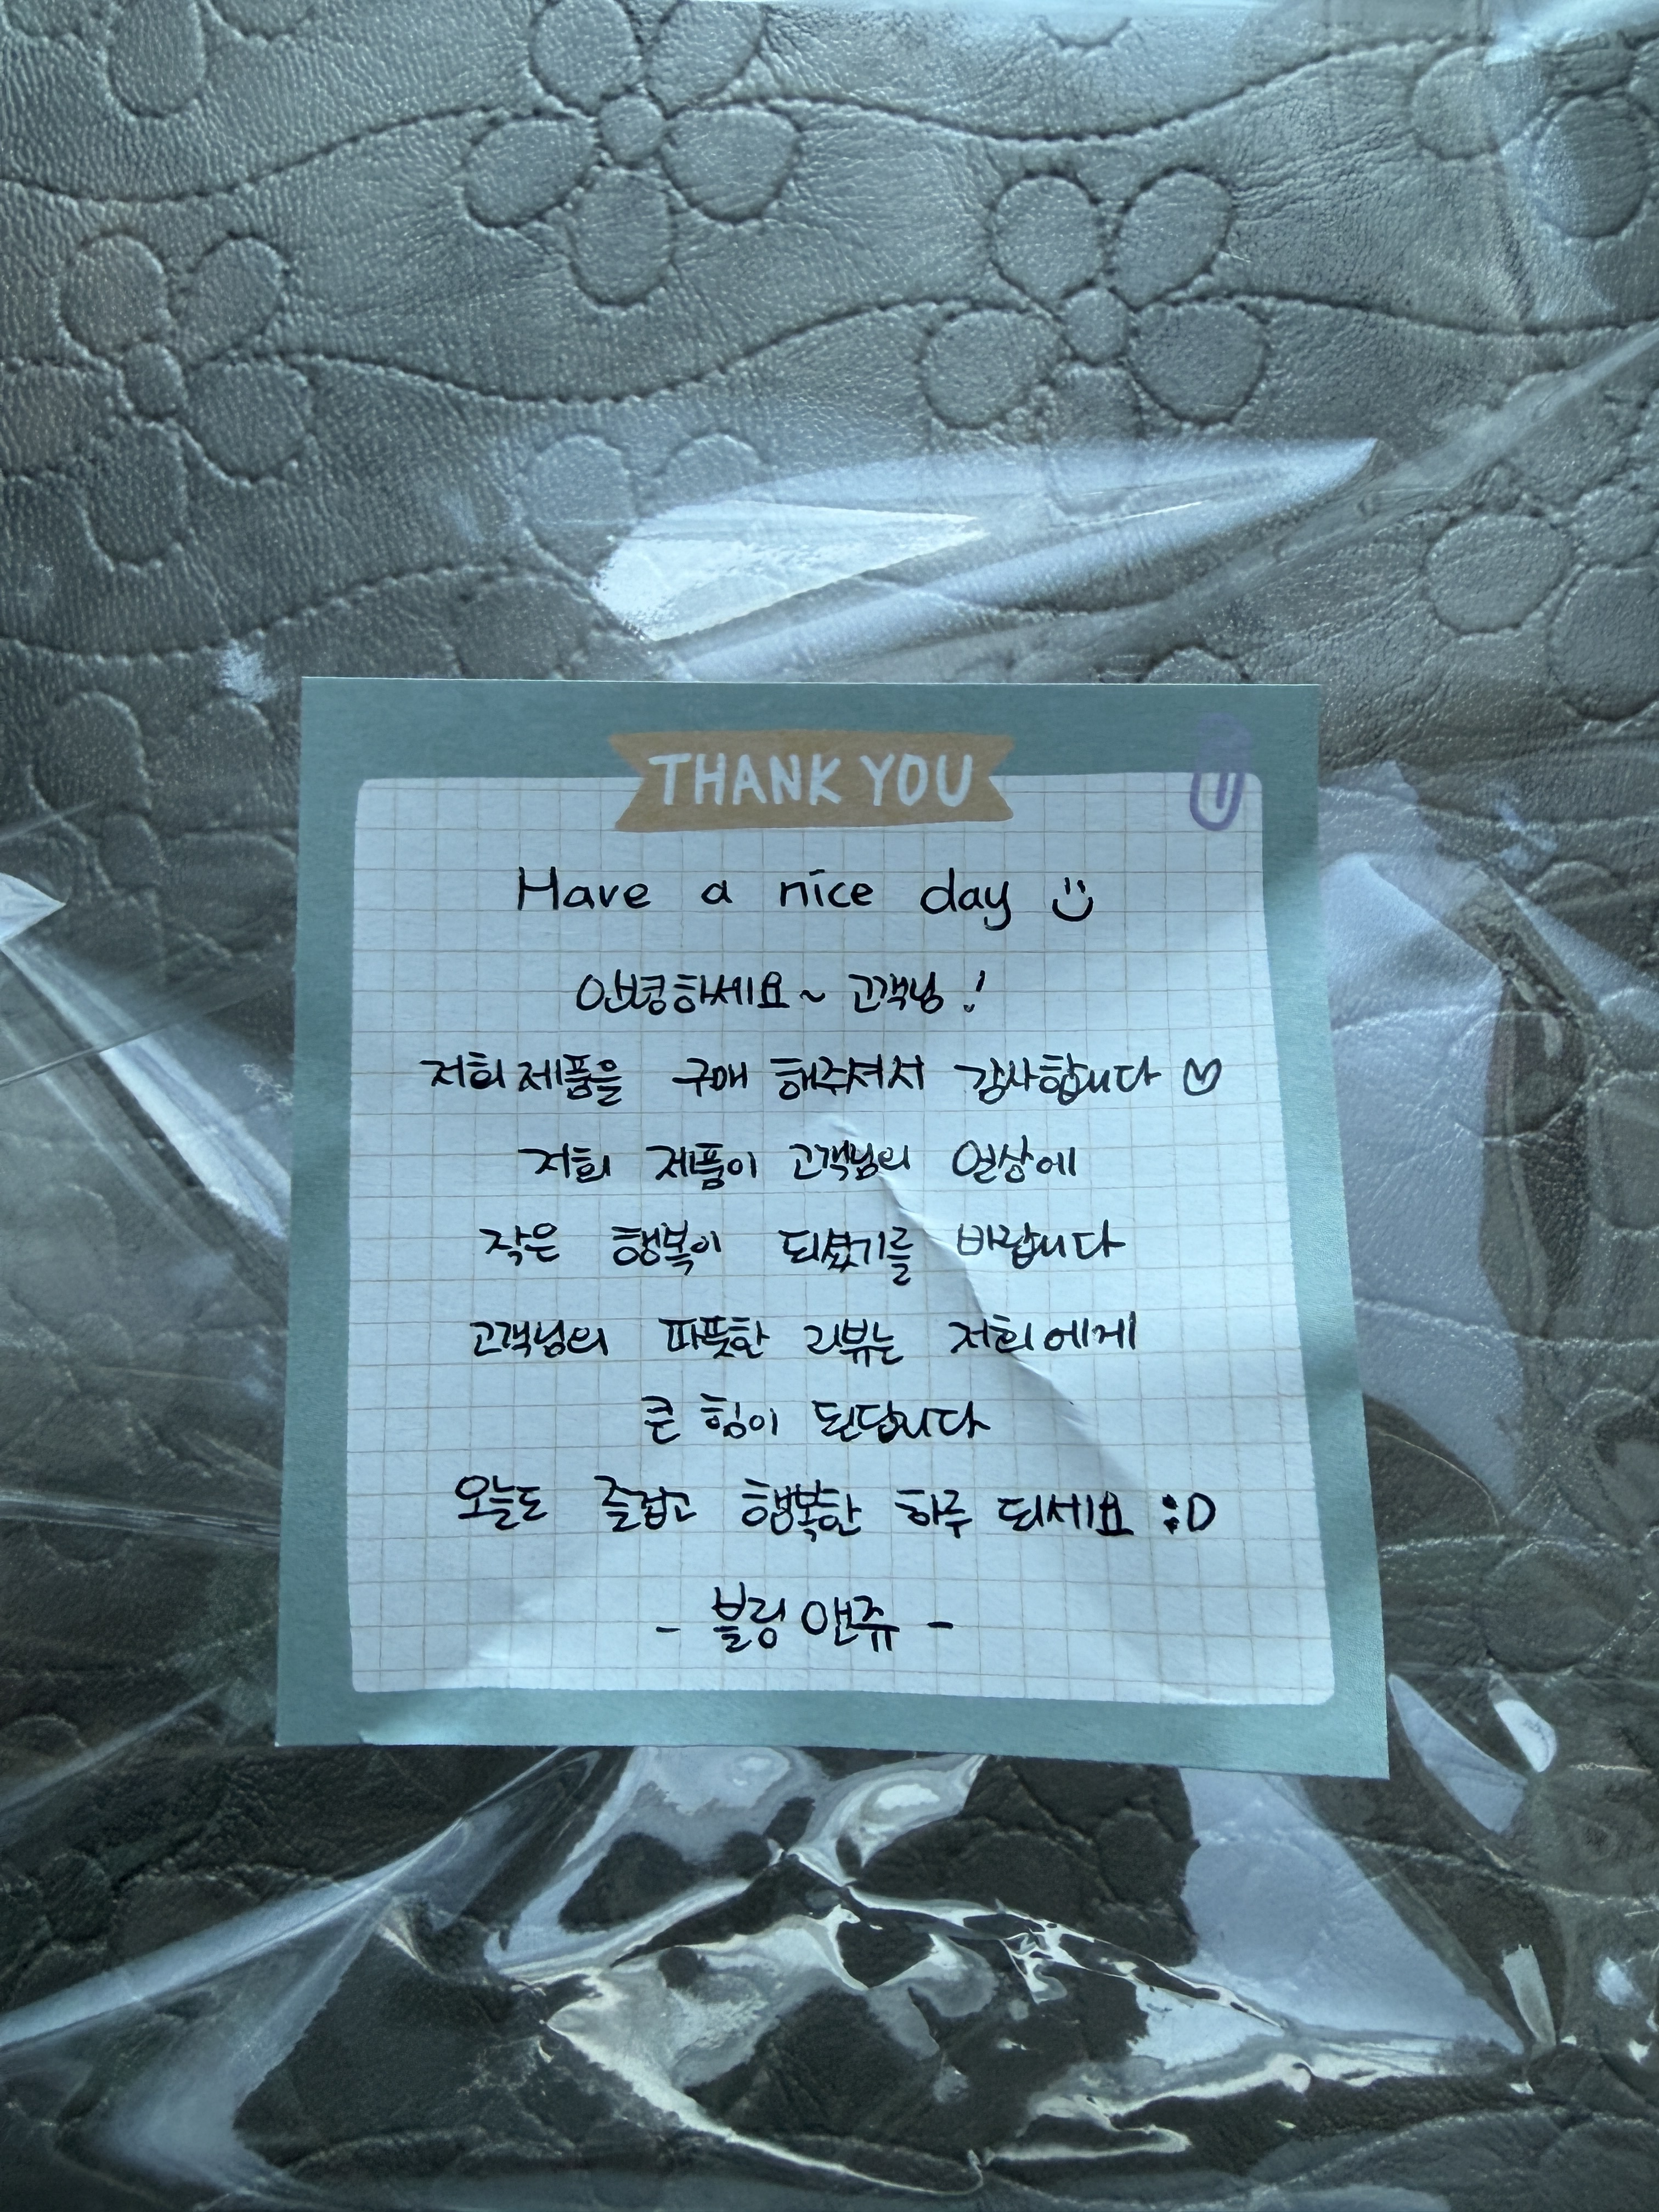 THANK YOU
Have a nice day
안녕하세요~ 고객님!
저희 제품을 구매 해주셔서 감사합니다 ♡
저희 제품이 고객님의 일상에
작은 행복이 되셨기를 바랍니다
고객님의 따뜻한 리뷰는 저희에게
큰 힘이 된답니다
오늘도 즐겁고 행복한 하루 되세요 :D
- 블링앤쥬 -